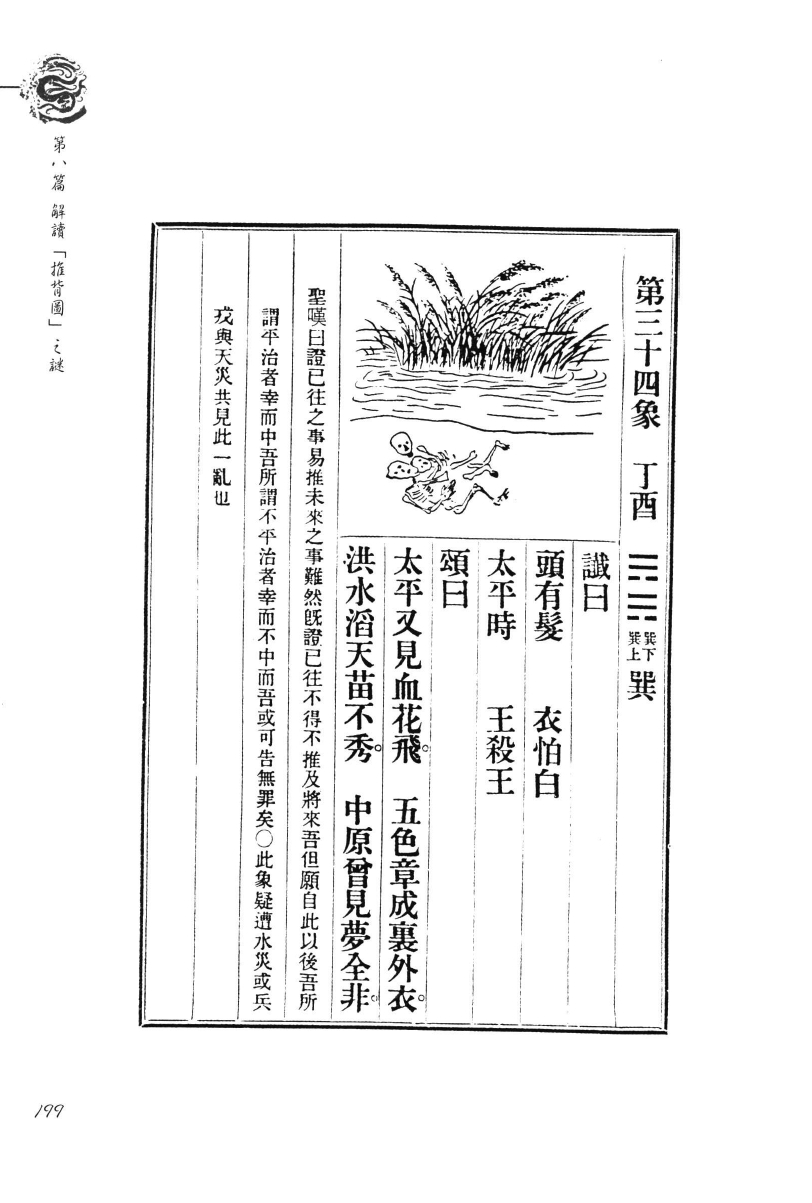 第八篇 解讀「推背圖」之謎
第三十四象 丁酉 ☴☴ 巽下巽上 巽
讖曰
頭有髮 衣怕白
太平時 王殺王
頌曰
太平又見血花飛。 五色章成裏外衣。
洪水滔天苗不秀。 中原曾見夢全非。
聖嘆曰證已往之事易推未來之事難然旣證已往不得不推及將來吾但願自此以後吾所
謂平治者幸而中吾所謂不平治者幸而不中而吾或可告無罪矣〇此象疑遭水災或兵
戎與天災共見此一亂也
199